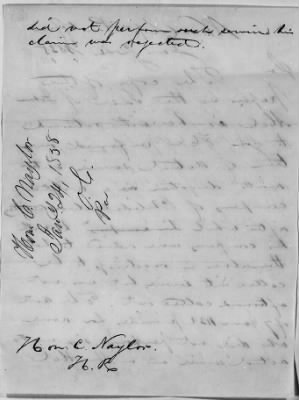 did not perform such service his
claim was rejected.
Hon. C. Naylor
Jany 24, 1838
Pa
Hon. C. Naylor.
H. R.